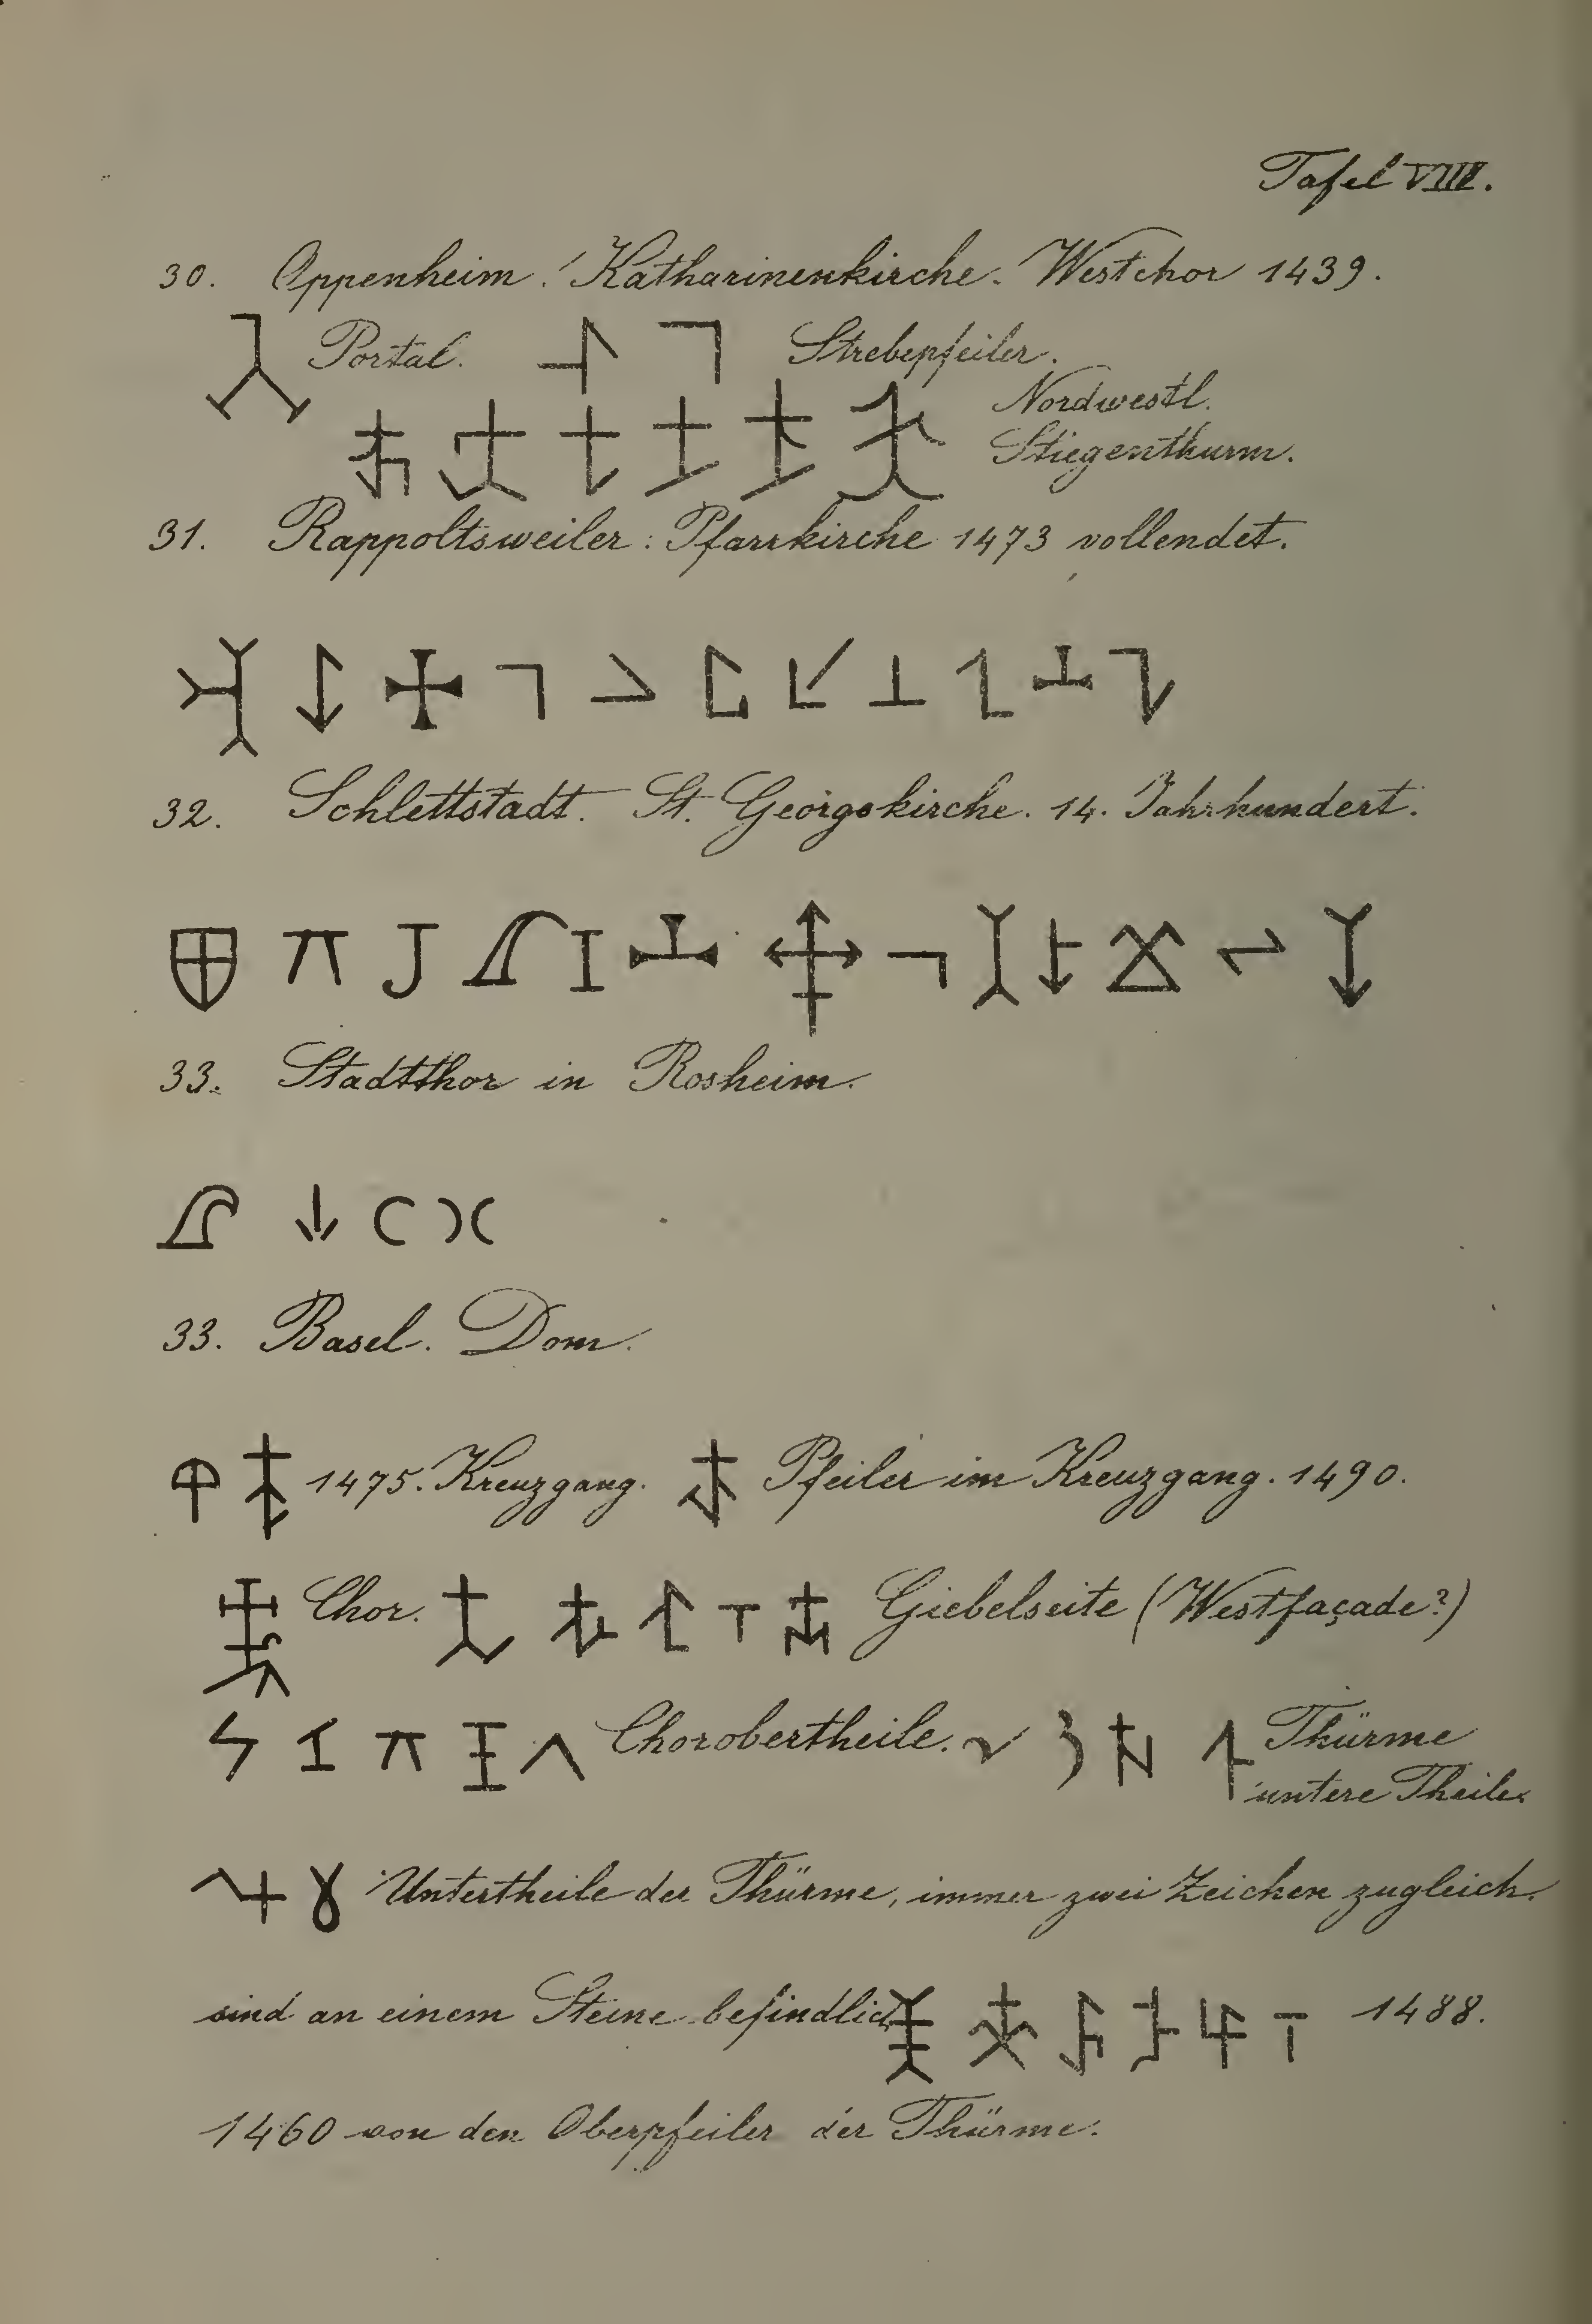 Tafel VIII.
30. Oppenheim. Katharinenkirche. Westchor 1439.
Portal. Strebepfeiler.
Nordwestl.
Stiegenthurm.
31. Rappoltsweiler: Pfarrkirche 1473 vollendet.
32. Schlettstadt. St. Georgskirche. 14. Jahrhundert.
33. Stadtthor in Rosheim.
33. Basel. Dom.
1475. Kreuzgang. Pfeiler im Kreuzgang. 1490.
Chor. Giebelseite (Westfaçade?)
Chorobertheile. Thürme
untere Theile.
Untertheile der Thürme, immer zwei Zeichen zugleich.
sind an einem Steine befindlich 1488.
1460 von den Oberpfeiler der Thürme.